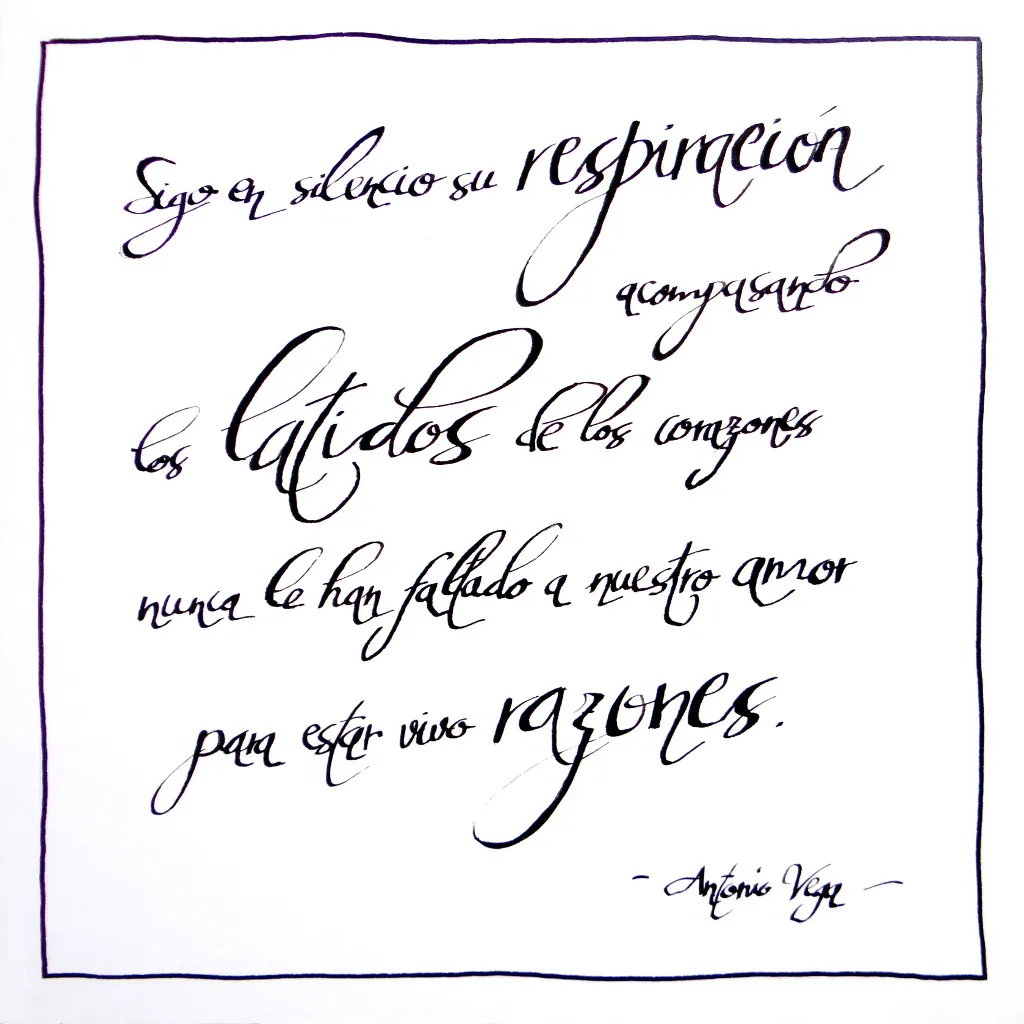 Sigo en silencio su respiración
acompasando
los latidos de los corazones
nunca le han faltado a nuestro amor
para estar vivo razones.
- Antonio Vega -